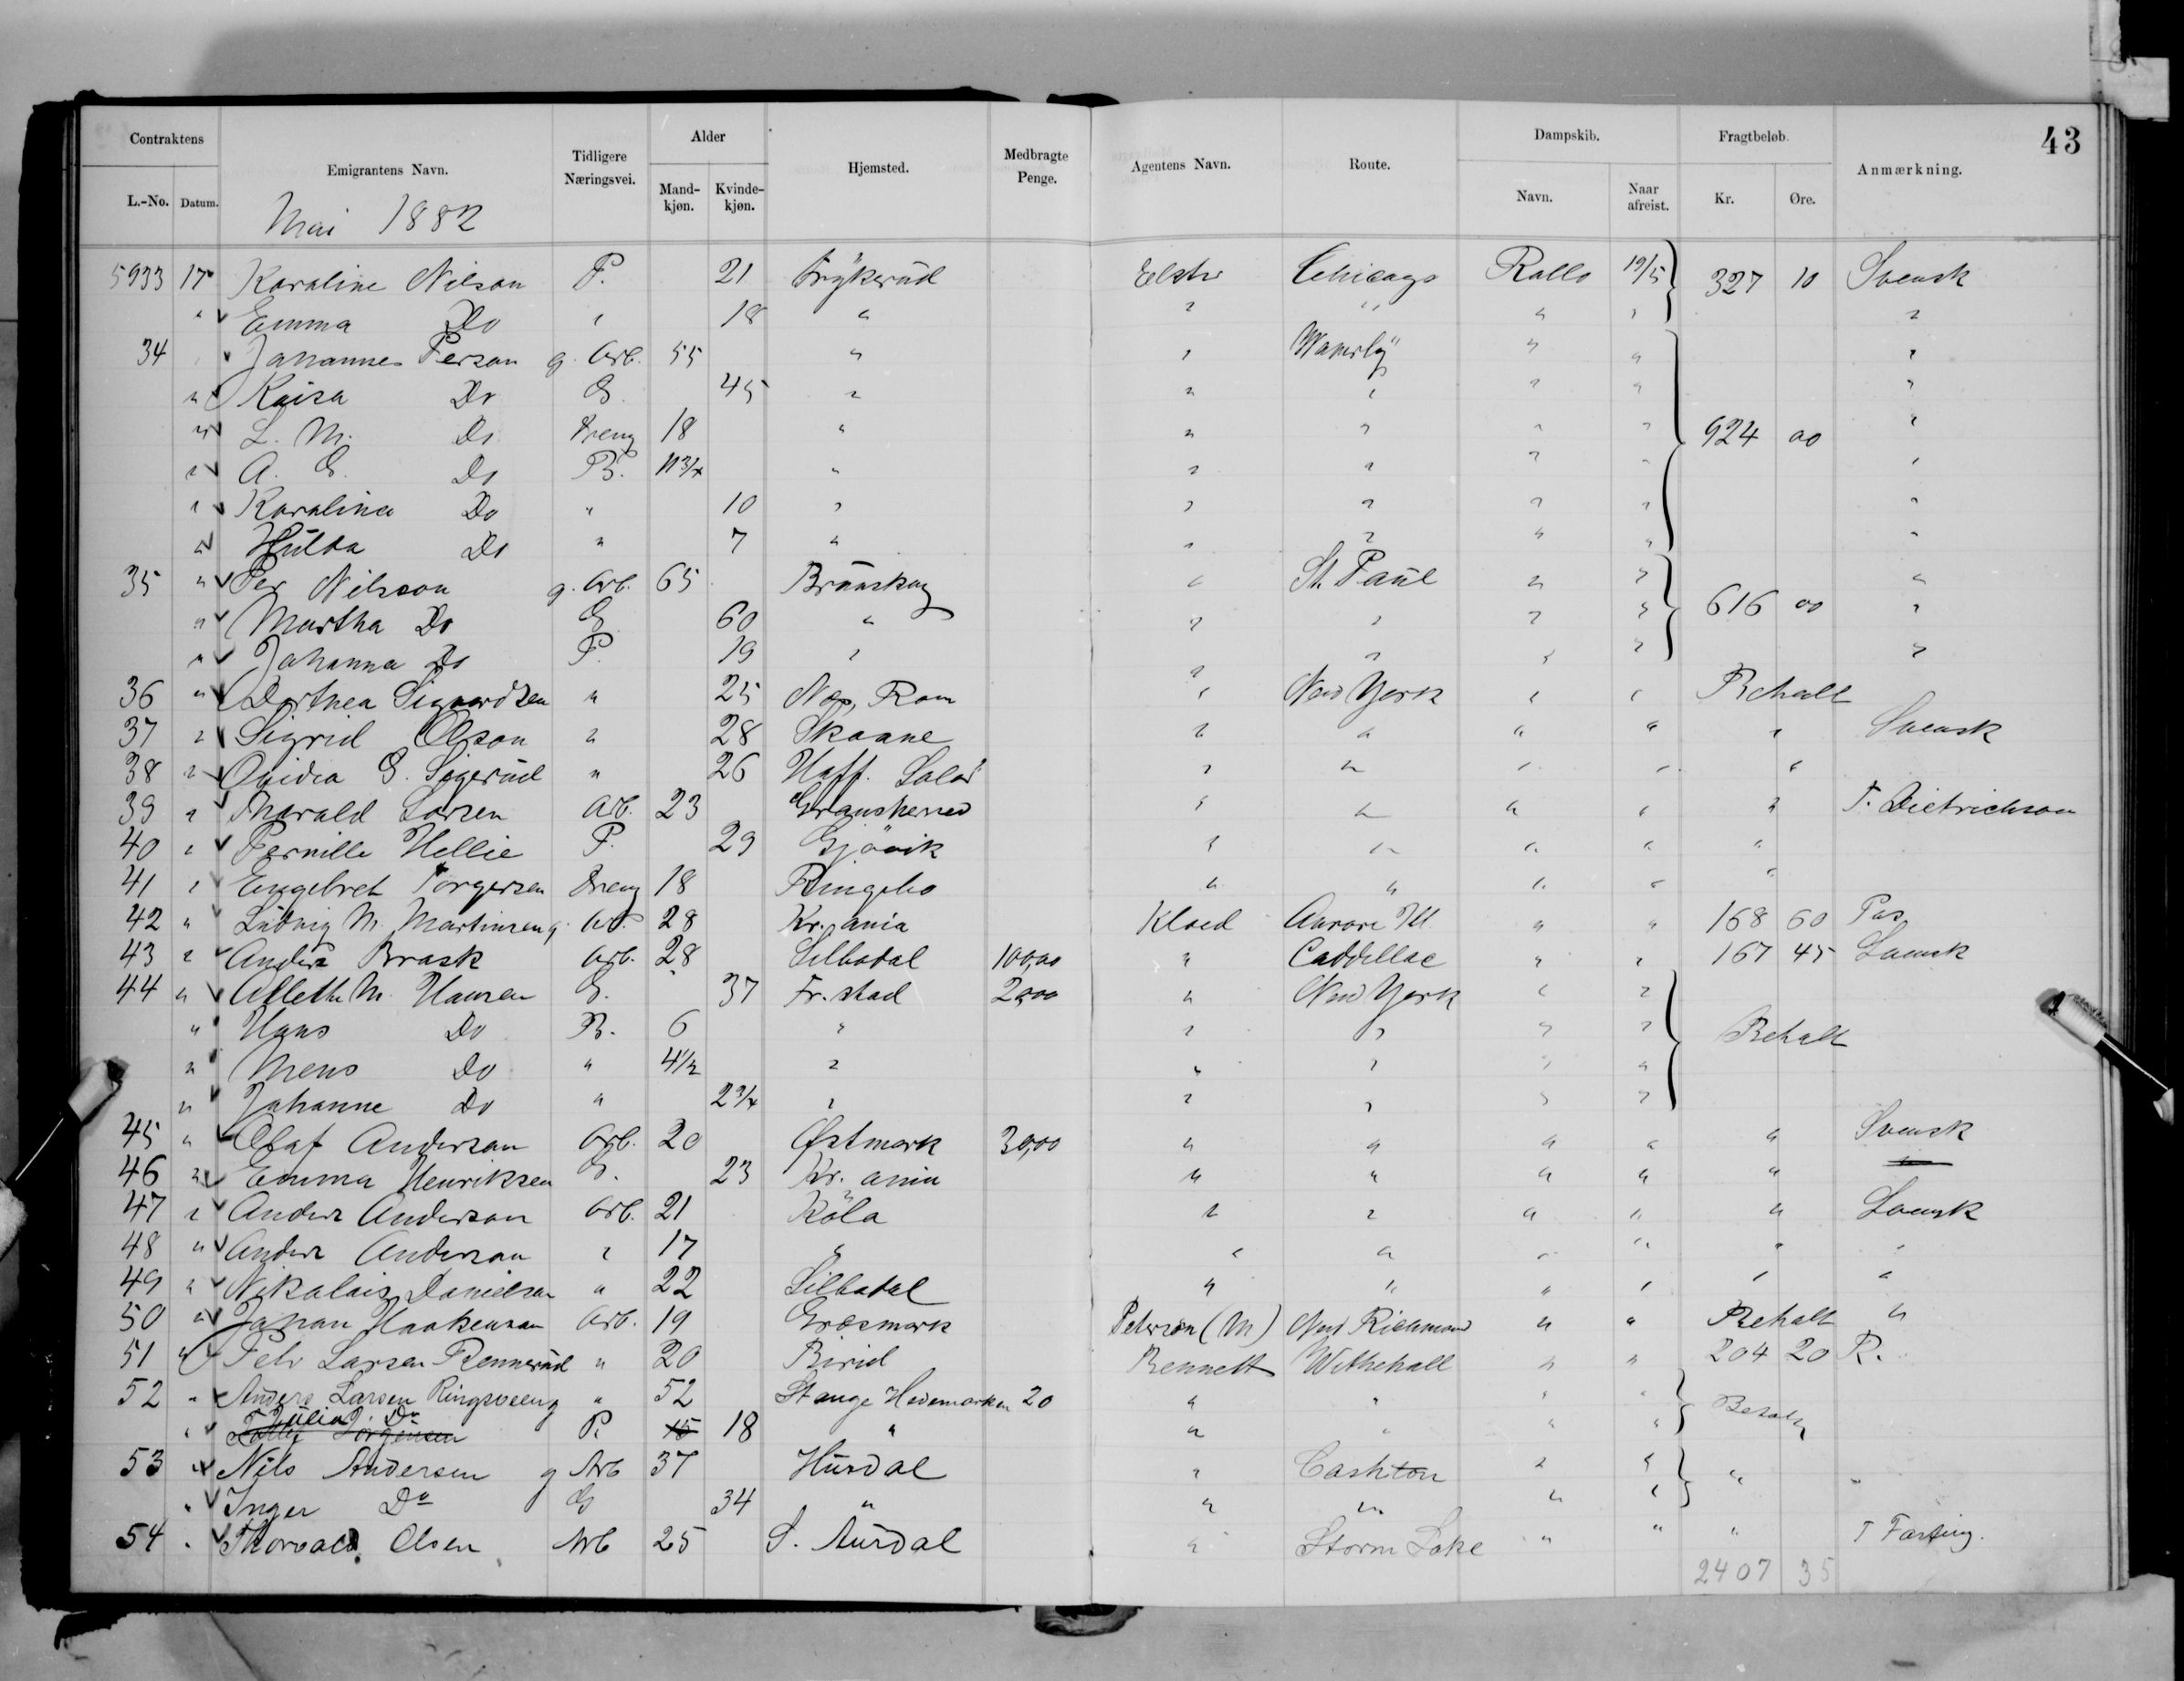 43
Contraktens Emigrantens Navn. Tidligere Næringsvei. Alder Hjemsted. Medbragte Penge. Agentens Navn. Route. Dampskib. Fragtbeløb. Anmærkning.
L.-No. Datum. Mand-kjøn. Kvinde-kjøn. Navn. Naar afreist. Kr. Øre.
Mai 1882
5933 17 Karoline Nilson P. 21 Frykerud Elster Chicago Rollo 19/5 327 10 Svensk
" Emma Do " 18 " " " " " "
34 " Johannes Person g. Arb. 55 " " Waverly " " "
" Kaisa Do G. 45 " " " " " "
" L. M. Do Dreng 18 " " " " " 924 00 "
" A. G. Do B. 11 3/4 " " " " " "
" Karolina Do " 10 " " " " " "
" Hulda Do " 7 " " " " " "
35 " Per Nilsson g. Arb. 65 Brunskog " St. Paul " " "
" Martha Do G 60 " " " " " 616 00 "
" Johanna Do P. 19 " " " " " "
36 " Dorthea Sigvardsen " 25 Næs, Rom " New York " " Betalt
37 " Sigrid Olson " 28 Skaane " " " " " Svensk
38 " Ovidia G. Sigerud " 26 Hoff. Solør " " " " "
39 " Harald Larsen Arb. 23 Gransherred " " " " " T. Dietrichson
40 " Pernille Hellie P. 29 Gjövik " " " " "
41 " Engebret Torgersen Dreng 18 Ringebo " " " " "
42 " Ludvig M. Martinsen g. Arb. 28 Kr.ania Kloed Aurora Ill " " 168 60 Pas
43 " Anders Brask Arb. 28 Silbodal 100,00 " Caddillac " " 167 45 Svensk
44 " Alleth M. Hansen G. 37 Fr.stad 20,00 " New York " "
" Hans Do B. 6 " " " " " Betalt
" Mens Do " 4 1/2 " " " " "
" Johanne Do " 2 3/4 " " " " "
45 " Olaf Anderson Arb. 20 Østmark 30,00 " " " " " Svensk
46 " Emma Henriksen G. 23 Kr.ania " " " " "
47 " Anders Anderson Arb. 21 Köla " " " " " Svensk
48 " Anders Anderson " 17 " " " " " " "
49 " Nikolais Danielsen " 22 Silbodal " " " " " "
50 " Johan Haakensen Arb. 19 Gräsmark Peterson (M) New Richmond " " Betalt "
51 " Peter Larsen Rennerud " 20 Birid Bennett Withehall " " 204 20 R.
52 " Anders Larsen Ringsveen g " 52 Stange Hedemarken 20 " " " " Betalt
" Julia Do P. 18 " " " " "
53 " Nils Andersen g Arb 37 Hurdal " Cashton " " " "
" Inger Do G 34 " " " " "
54 " Thorvald Olsen Arb 25 S. Aurdal " Storm Lake " " " T Fasting.
2407 35